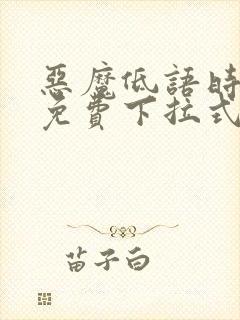 惡魔低語時
免費下拉式
苗子白